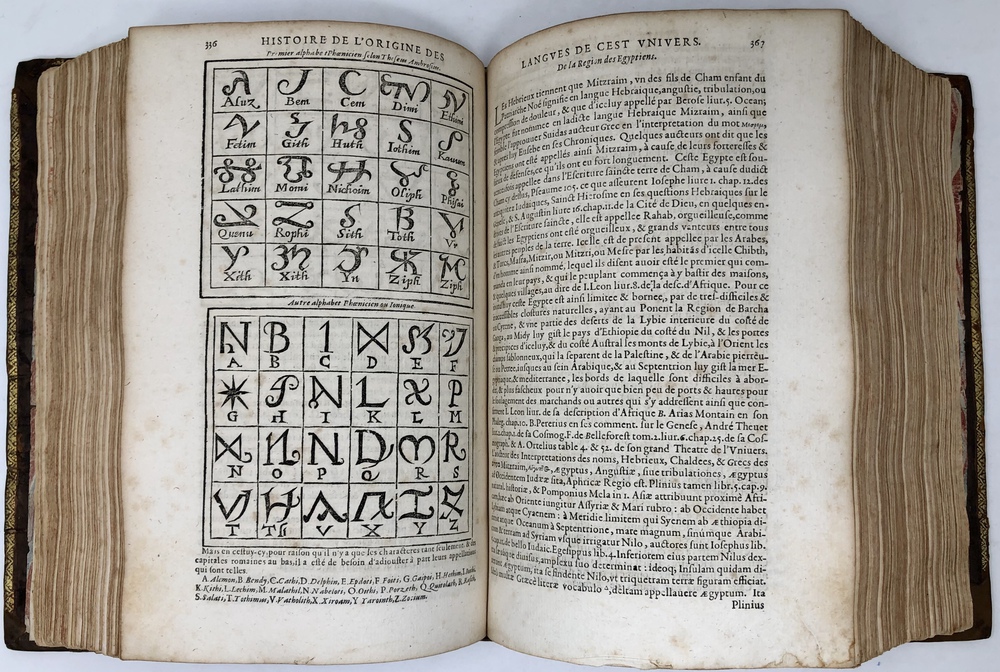 336 HISTOIRE DE L'ORIGINE DES
Premier alphabet Phœnicien selon Theseus Ambrosius.
Asuz Bem Cem Dimi Ethim
Fethim Gith Huth Iothim Kauum
Lathim Momi Nichoim Oliph Phisai
Qunu Rophi Sith Toth
Xith Xith Yn Ziph Ziph
Autre alphabet Phœnicien ou Ionique.
A B C D E F
G H I K L M
N O P Q R S
T Th V X Y Z
Mais en cestuy-cy, pour raison qu'il n'y a que les characteres tant seulement, &
capitales romaines au bas, il a esté de besoin d'adiouster à part leurs appellations
qui sont telles.
A. Alemon, B. Bendy, C. Cathi, D. Delphin, E. Epdoi, F. Foiti, G. Gaipoi, H. Hethim,
K. Kithi, L. Lechim, M. Malathi, N. Nabeloti, O. Oithi, P. Porzeth, Q. Quitolath,
S. Salati, T. Tothimus, V. Vatholith, X. Xiroam, Y. Yarointh, Z. Zotum.
LANGVES DE CEST VNIVERS. 367
De la Region des Egyptiens.
Es Hebrieux tiennent que Mitzraim, vn des fils de Cham enfant du
Patriarche Noé signifie en langue Hebraique, angustie, tribulation, ou
oppression de douleur, & que d'iceluy appellé par Berose liur.5. Ocean;
l'Egypte fut nommee en ladicte langue Hebraïque Mizraim, ainsi que
semble l'approuuer Suidas aucteur Grec en l'interpretation du mot
& apres luy Eusebe en ses Chroniques. Quelques aucteurs ont dit que les
Egyptiens ont esté appellés ainsi Mitzraim, à cause de leurs forteresses &
lieux de defenses, ce qu'ils ont eu fort longuement. Ceste Egypte est sou-
uentesfois appellee dans l'Escriture saincte terre de Cham, à cause dudict
Cham cy dessus, Pseaume 105. ce que asseurent Iosephe liure 1. chap. 12. des
antiquités Iudaiques, Sainct Hierosme en ses questions Hebraiques sur le
Genese, & S. Augustin liure 16. chap. 11. de la Cité de Dieu, en quelques en-
droits de l'Escriture saincte, elle est appellee Rahab, orgueilleuse, comme
de faict les Egyptiens ont esté orgueilleux, & grands vanteurs entre tous
autres peuples de la terre. Icelle est de present appellee par les Arabes,
& Turcs, Massa, Mitzir, ou Mitzri, ou Mesre par les habitās d'icelle Chibth,
d'vn homme ainsi nommé, lequel ils disent auoir esté le premier qui com-
manda en leur pays, & qui le peuplant commença à y bastir des maisons,
& quelques villages, au dire de I. Leon liur. 8. de la desc. d'Afrique. Pour ce
ceste Egypte est ainsi limitee & bornee, par de tres-difficiles &
inaccessibles clostures naturelles, ayant au Ponent la Region de Barcha
ou Cyrene, & vne partie des deserts de la Lybie interieure du costé de
au Midy luy gist le pays d'Ethiopie du costé du Nil, & les portes
& precipices d'iceluy, & du costé Austral les monts de Lybie, à l'Orient les
champs sablonneux, qui la separent de la Palestine, & de l'Arabie pierreu-
se ou Petree, iusques au sein Arabique, & au Septentrion luy gist la mer E-
gyptique, & mediterranee, les bords de laquelle sont difficiles à abor-
der, & plus fascheux pour n'y auoir que bien peu de ports & haures pour
le soulagement des marchands ou autres qui s'y addressent ainsi que con-
firment I. Leon liur. de sa description d'Afrique B. Arias Montain en son
Phaleg. chap. 10. B. Pererius en ses comment. sur le Genese, André Theuet
liur. 2. chap. 1. de sa Cosmog. F. de Belleforest tom. 2. liur. 6. chap. 25. de sa Cos-
mograph. & A. Ortelius table 4. & 52. de son grand Theatre de l'Vniuers.
L'aucteur des Interpretations des noms, Hebrieux, Chaldees, & Grecs des
Mitzraim, Ægyptus, Angustiæ, siue tribulationes, Ægyptus
ad Occidentem Iudææ sita, Aphricæ Regio est. Plinius tamen libr. 5. cap. 9.
natural. historiæ, & Pomponius Mela in 1. Asiæ attribuunt proximè Afri-
ab Oriente iungitur Assyriæ & Mari rubro: ab Occidente habet
Cyaenem: à Meridie limitem qui Syenem ab Æthiopia di-
Oceanum à Septentrione, mate magnum, sinúmque Arabi-
terram ad Syriam vsque irrigatur Nilo, auctores sunt Iosephus lib.
de bello Iudaic. Egesippus lib. 4. Inferiotem eius partem Nilus dex-
diuisus, amplexu suo determinat: ideoq; Insulam quidam di-
Ægyptum, ita se findente Nilo, vt triquetram terræ figuram efficiat.
Græcæ literæ vocabulo Δ, deltam appellauere Ægyptum. Ita
Plinius